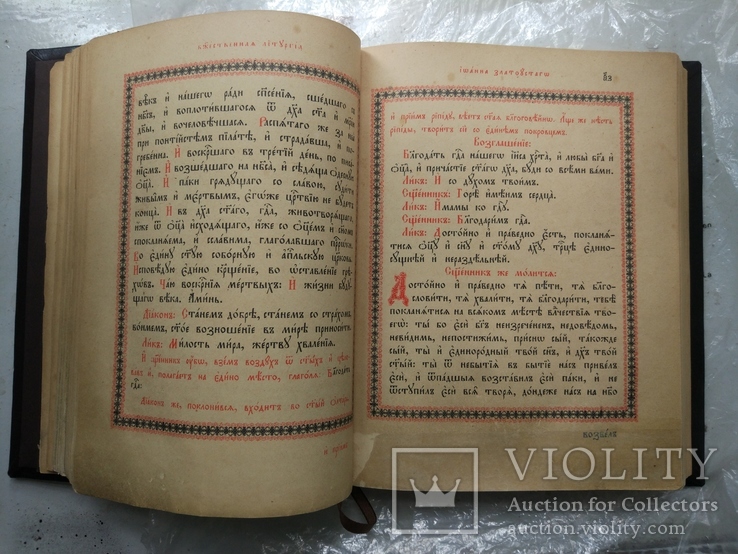 вѣкъ и нашегѡ ради спⷭ҇енїѧ, сшедшаго с
нб҃съ, и воплотившагосѧ ѿ дх҃а ст҃а и мр҃їи
дв҃ы, и вочеловѣчшасѧ. Распѧтаго же за ны
при понтїйстѣмъ пїлатѣ, и страдавша, и по-
гребенна. И воскршаго въ третїй день, по пи
И возшедшаго на нб҃са, и сѣдѧща ѡдесную
оц҃а. И паки грѧдущаго со славою, судити
живымъ и мертвымъ, егѡже црⷭ҇твїю не будетъ
конца. И въ дх҃а ст҃аго, гдⷭ҇а, животворѧщаго,
иже ѿ оц҃а исходѧщаго, иже со оц҃емъ и сн҃омъ
спокланѧема, и сславима, глаголавшаго прⷪ҇рки.
Во едину ст҃ую соборную и апⷭ҇льскую цр҃ковь.
Исповѣдую едино крⷭ҇щенїе, во ѡставленїе грѣ-
хѡвъ. Чаю воскрнїѧ мертвыхъ: И жизни буду-
щагѡ вѣка. Аминь.
Дїаконъ: Станемъ добрѣ, станемъ со страхомъ,
вонмемъ, ст҃ое возношенїе въ мирѣ приносити.
Ликъ: Милость мира, жертву хваленїѧ.
И сщ҃енникъ ѹбѡ, вземъ воздухъ ѿ ст҃ыхъ и цѣло-
вавъ и, полагаетъ на едино мѣсто, глаголѧ: Благодать
гдⷭ҇а:
Дїаконъ же, поклонивсѧ, входитъ во ст҃ый ѻлтарь.
и прїемъ
їѡанна златоустагѡ
и прїимъ рїпїду, вѣетъ ст҃аѧ благоговѣйнѡ. Аще же нѣсть
рїпїды, творитъ сїе со единѣмъ покровцемъ.
Возглашенїе:
Благодать гдⷭ҇а нашегѡ їи҃са хрⷭ҇та, и любы бг҃а и
оц҃а, и причастїе ст҃агѡ дх҃а, буди со всѣми вами.
Ликъ: И со духомъ твоимъ.
Сщ҃енникъ: Горѣ имѣимъ сердца.
Ликъ: Имамы ко гдⷭ҇у.
Сщ҃енникъ: Благодаримъ гдⷭ҇а.
Ликъ: Достойно и праведно есть, покланѧ-
тисѧ оц҃у и сн҃у и ст҃ому дх҃у, трⷪ҇цѣ едино-
сущнѣй и нераздѣльнѣй.
Сщ҃енникъ же молитсѧ:
Достойно и праведно тѧ пѣти, тѧ благо-
словити, тѧ хвалити, тѧ благодарити, тебѣ
покланѧтисѧ на всѧкомъ мѣстѣ влⷣчествїѧ тво-
егѡ: ты бо еси бг҃ъ неизречененъ, недовѣдомь,
невидимь, непостижимь, приснѡ сый, такожде
сый, ты и единородный твой сн҃ъ, и дх҃ъ твой
ст҃ый: ты ѿ небытїѧ въ бытїе насъ привелъ
еси, и ѿпадшыѧ возставилъ еси паки, и не
ѿступилъ еси всѧ творѧ, дондеже насъ на нб҃о
возвелъ
VIOLITY
Auction for Collectors
auction.violity.com